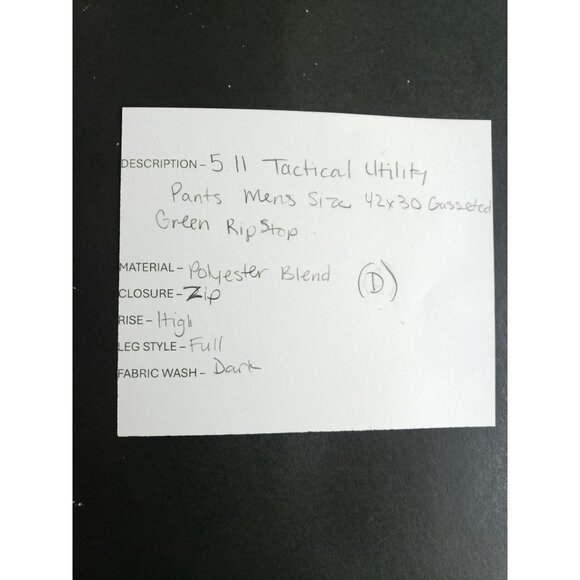 DESCRIPTION - 5.11 Tactical Utility
Pants Mens Size 42x30 Gusseted
Green RipStop
MATERIAL - Polyester Blend (D)
CLOSURE - Zip
RISE - High
LEG STYLE - Full
FABRIC WASH - Dark